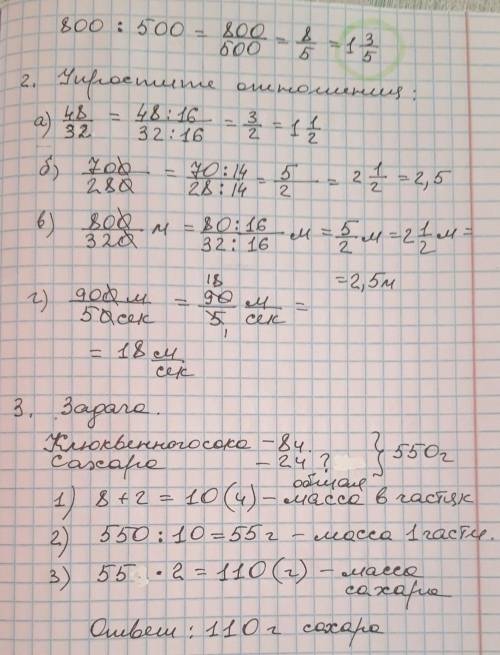 800 : 500 = 800/500 = 8/5 = 1 3/5
2. Упростите отношения:
а) 48/32 = 48:16/32:16 = 3/2 = 1 1/2
б) 700/280 = 70:14/28:14 = 5/2 = 2 1/2 = 2,5
в) 800/320 м = 80:16/32:16 м = 5/2 м = 2 1/2 м =
= 2,5 м
г) 900 м/50 сек = 90/5 18/1 м/сек =
= 18 м/сек
3. Задача.
Клюквенного сока – 8ч.
Сахара – 2ч ? } 550 г
1) 8 + 2 = 10 (ч) – общая масса в частях
2) 550 : 10 = 55 г – масса 1 части.
3) 55 · 2 = 110 (г) – масса
сахара
Ответ : 110 г сахара